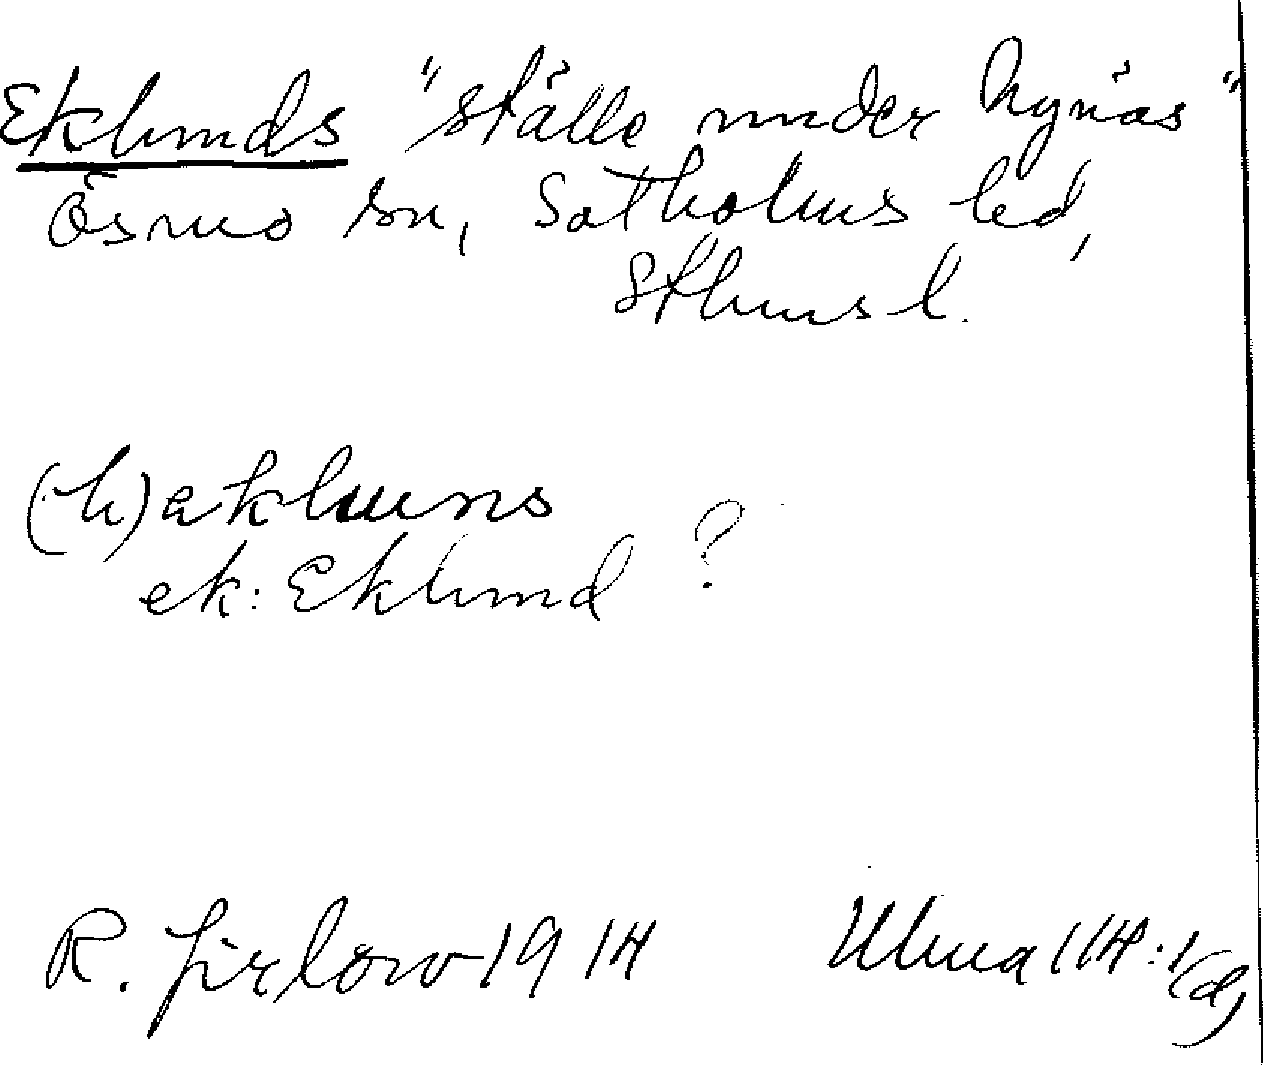 Eklunds "ställe under Nynäs"
Ösmo sn, Sotholms hd,
Sthms l.
(h)eklunns
ek: Eklund ?
R. Jirlow 1914 Ulma 114:1(d)